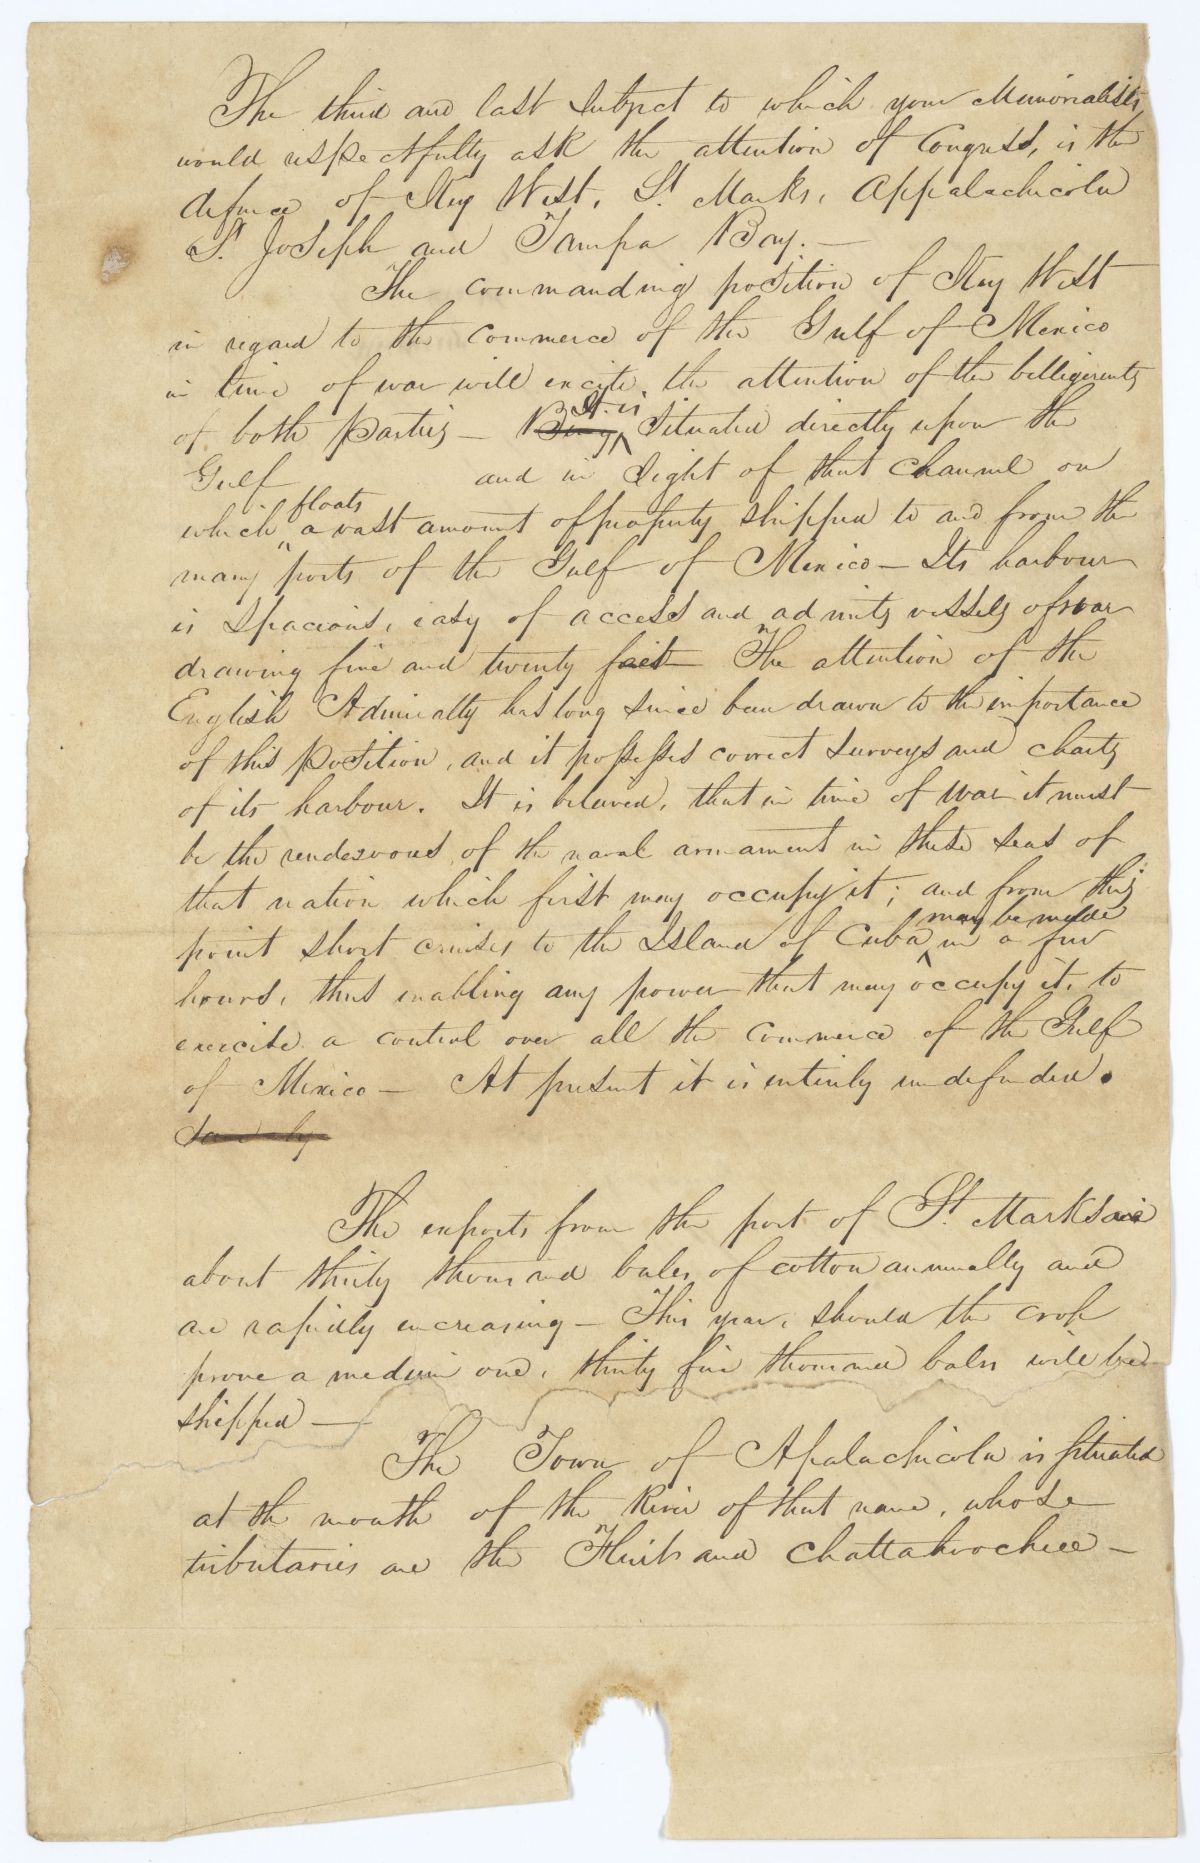 The third and last subject to which your Memorialists,
would respectfully ask the attention of Congress, is the
defence of Key West, St. Marks, Appalachicola
St. Joseph and Tampa Bay. —
The commanding position of Key West
in regard to the commerce of the Gulf of Mexico
in time of war will excite the attention of the belligerents
of both parties — Being It is situated directly upon the
Gulf and in sight of that channel on
which floats a vast amount of property shipped to and from the
many ports of the Gulf of Mexico — Its harbour
is spacious, easy of access and admits vessels of war
drawing five and twenty feet The attention of the
English Admiralty has long since been drawn to the importance
of this position, and it possesses correct surveys and charts
of its harbour. It is beleived, that in time of war it must
be the rendezvous of the naval armament in these seas of
that nation which first may occupy it; and from this
point short cruises to the Island of Cuba may be made in a few
hours, thus enabling any power that may occupy it, to
exercise a control over all the commerce of the Gulf
of Mexico — At present it is entirely undefended.
The exports from the port of St. Marks are
about thirty thousand bales of cotton annually and
are rapidly encreasing — This year, should the crop
prove a medium one, thirty five thousand bales will be
shipped —
The Town of Apalachicola is situated
at the mouth of the River of that name, whose
tributaries are the Flint and Chattahoochee —